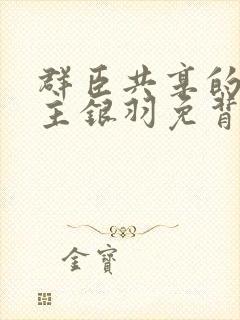 群臣共享的
主银羽免背
金寶